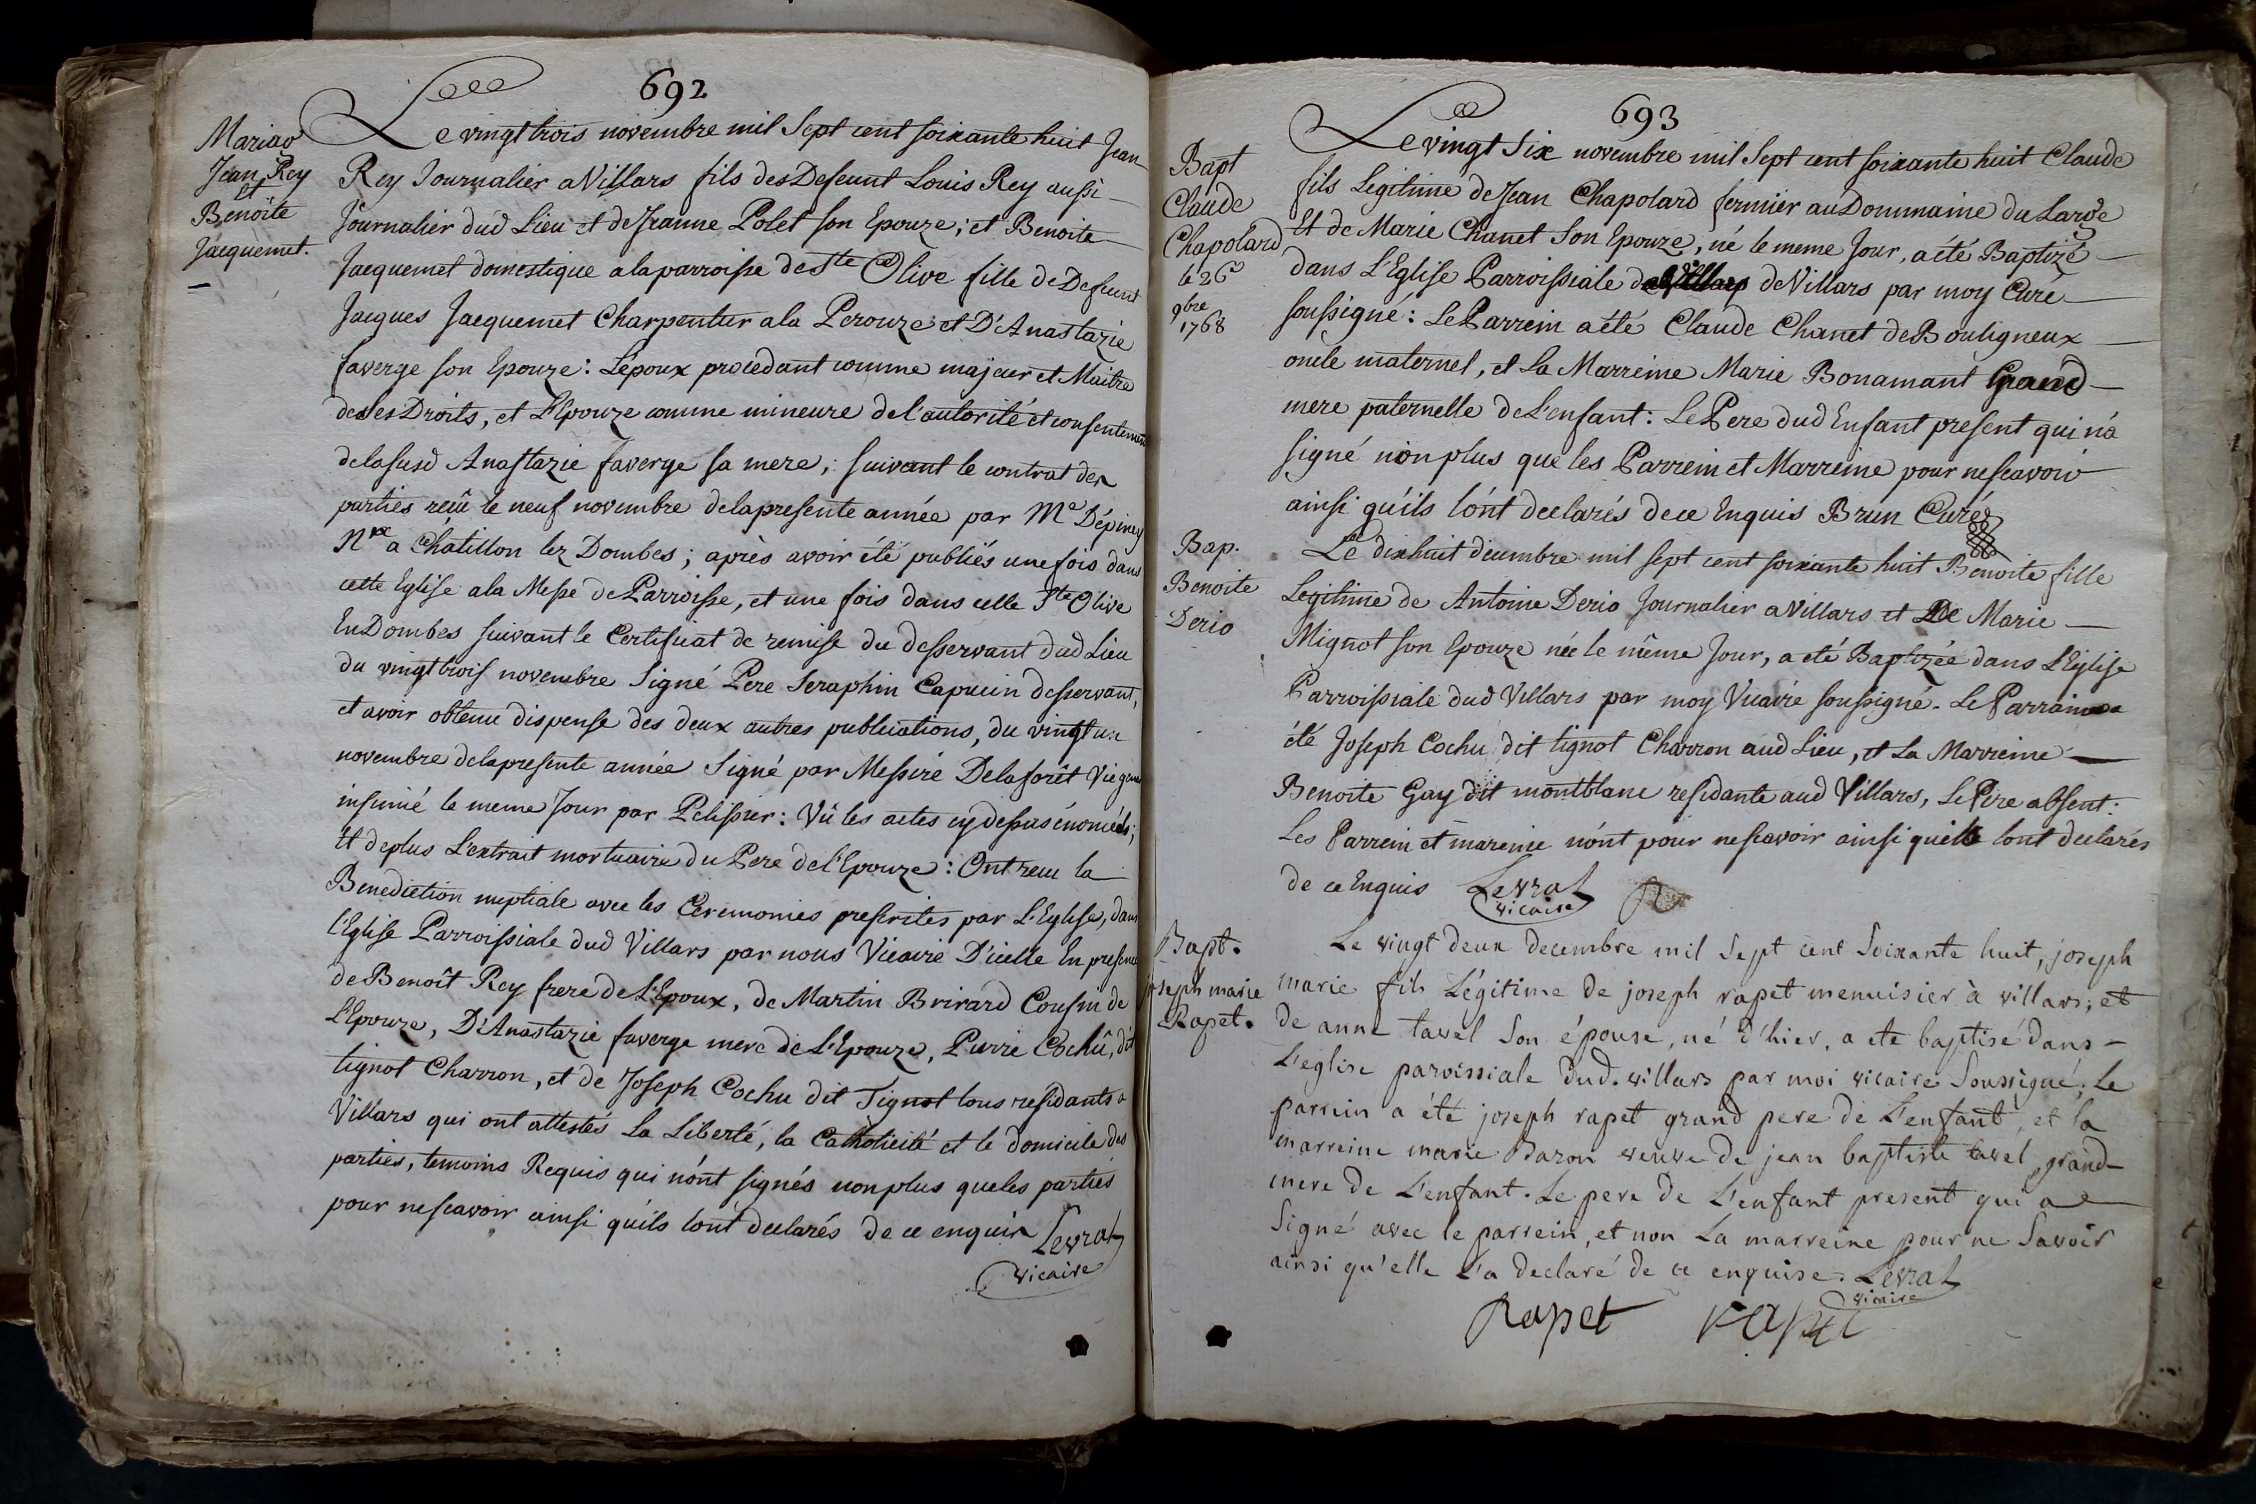 692
Mariag
Jean Rey
et
Benoite
Jacquemet.
Le vingt trois novembre mil Sept cent soixante huit Jean
Rey Journalier a Villars fils des Defeunt Louis Rey aussi
Journalier dud Lieu et de Jeanne Polet son Epouze; et Benoite
Jacquemet domestique a la parroisse de Ste Olive fille de Defeunt
Jacques Jacquemet Charpentier a la Perouze et D'Anastazie
faverge son Epouze: L'époux procedant comme majeur et Maitre
de ses Droits, et L'Epouze comme mineure de l'autorité et consentement
de la susd Anastazie faverge sa mere; suivant le contrat des
parties reçû le neuf novembre de la presente année par Me Dépiney
Nre a Châtillon lez Dombes; après avoir été publiés une fois dans
cette Eglise a la Messe de Parroisse, et une fois dans celle Ste Olive
En Dombes suivant le Certificat de remise du desservant dud Lieu
du vingt trois novembre Signé Pere Seraphin Capucin desservant,
et avoir obtenu dispense des deux autres publications, du vingt un
novembre de la presente année Signé par Messire Delaforêt Vic gene
insinué le meme Jour par Pelissier: Vû les actes cy dessus énoncés;
Et de plus L'extrait mortuaire du Pere de l'Epouze: Ont reçu la
Benediction nuptiale avec les Ceremonies prescrites par L'Eglise, dans
l'Eglise Parroissiale dud Villars par nous Vicaire D'icelle En presence
de Benoît Rey frere de L'Epoux, de Martin Brirard Cousin de
L'Epouze, D'Anastazie faverge mere de L'Epouze, Pierre Cochû, dit
tignot Charron, et de Joseph Cochu dit Tignot tous residants a
Villars qui ont attestés La Liberté, la Catholicité et le domicile des
parties, temoins Requis qui n'ont signés non plus que les parties
pour ne scavoir ainsi qu'ils l'ont declarés de ce enquis Levrat
vicaire
693
Bapt
Claude
Chapolard
le 26
9bre
1768
Le vingt Six novembre mil Sept cent soixante huit Claude
fils Legitime de Jean Chapolard fermier au Dommaine du Large
Et de Marie Chanet Son Epouze, né le meme Jour, a été Baptizé
dans L'Eglise Parroissiale de Villars par moy Curé
soussigné: Le Parrein a été Claude Chanet de Bouligneux
oncle maternel, et La Marreine Marie Bonamant Grand
mere paternelle de L'enfant: Le Pere dud Enfant present qui n'a
signé non plus que les Parrein et Marreine pour ne scavoir
ainsi qu'ils l'ont declarés de ce Enquis Brun Curé
Bap.
Benoite
Derio
Le dix huit decembre mil sept cent soixante huit Benoite fille
Legitime de Antoine Derio Journalier a Villars et De Marie
Mignot son Epouze née le même Jour, a eté Baptizée dans L'Eglise
Parroissiale dud Villars par moy Vicaire soussigné. Le Parrain a
été Joseph Cochu dit tignot Charron aud Lieu, et La Marreine
Benoite Gay dit montblanc residante aud Villars, Le Pere absent:
Les Parrein et mareine n'ont pour ne scavoir ainsi quels lont declarés
de ce Enquis Levrat
vicaire
Bapt.
joseph marie
Rapet.
Le vingt deux decembre mil sept cent Soixante huit, joseph
marie fils Légitime de joseph rapet menuisier à villars, et
de anne tavel Son épouse, né d'hier, a ete baptisé dans
L'eglise paroissiale dud. villars par moi vicaire Soussigné; Le
parrein a été joseph rapet grand pere de L'enfant, et la
marreine marie Bazon veuve de jean baptiste tavel grand
mere de L'enfant. Le pere de L'enfant present qui a
Signé avec le parrein, et non La marreine pour ne Savoir
ainsi qu'elle L'a declaré de ce enquise. Levrat
vicaire
Rapet rapet